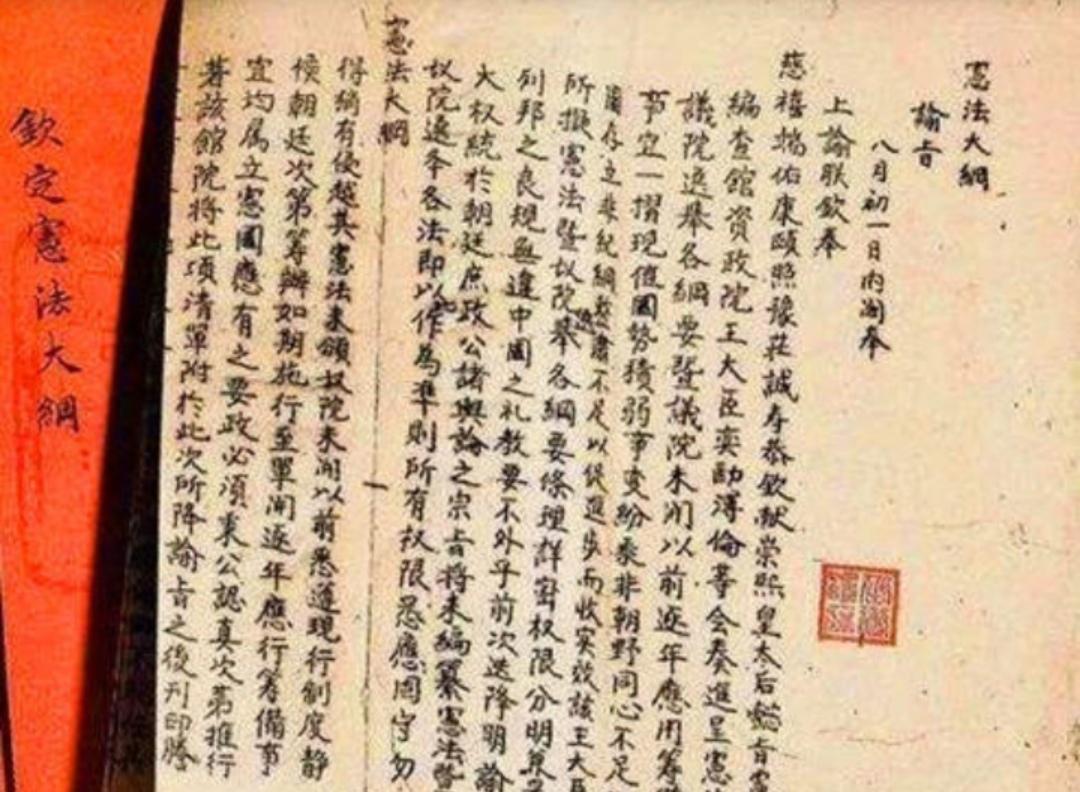 憲法大綱
諭旨
八月初一日內閣奉
上諭朕欽奉
慈禧端佑康頤照豫莊誠寿恭欽献崇熙皇太后懿旨憲
編查館資政院王大臣奕劻溥倫等會奏進呈憲法
議院选舉各綱要暨議院未開以前逐年應用籌
事宜一摺現值國勢積弱事变紛乘非朝野同心不足
圖存立非紀綱整肅不足以促進步而收实效該王大臣
所擬憲法暨议院选舉各綱要條理詳密权限分明兼
列邦之良規無違中國之礼教要不外乎前次迭降明諭
大权統於朝廷庶政公諸輿論之宗旨將来編纂憲法暨
议院选舉各法即以此作為準則所有权限悉應固守勿
憲法大綱
得稍有侵越其憲法未頒议院未開以前悉遵現行制度静
候朝廷次第籌辦如期施行至單開逐年應行籌備事
宜均屬立憲國應有之要政必須秉公認真次第推行
著該館院將此項清單附於此次所降諭旨之後刊印謄
欽定憲法大綱